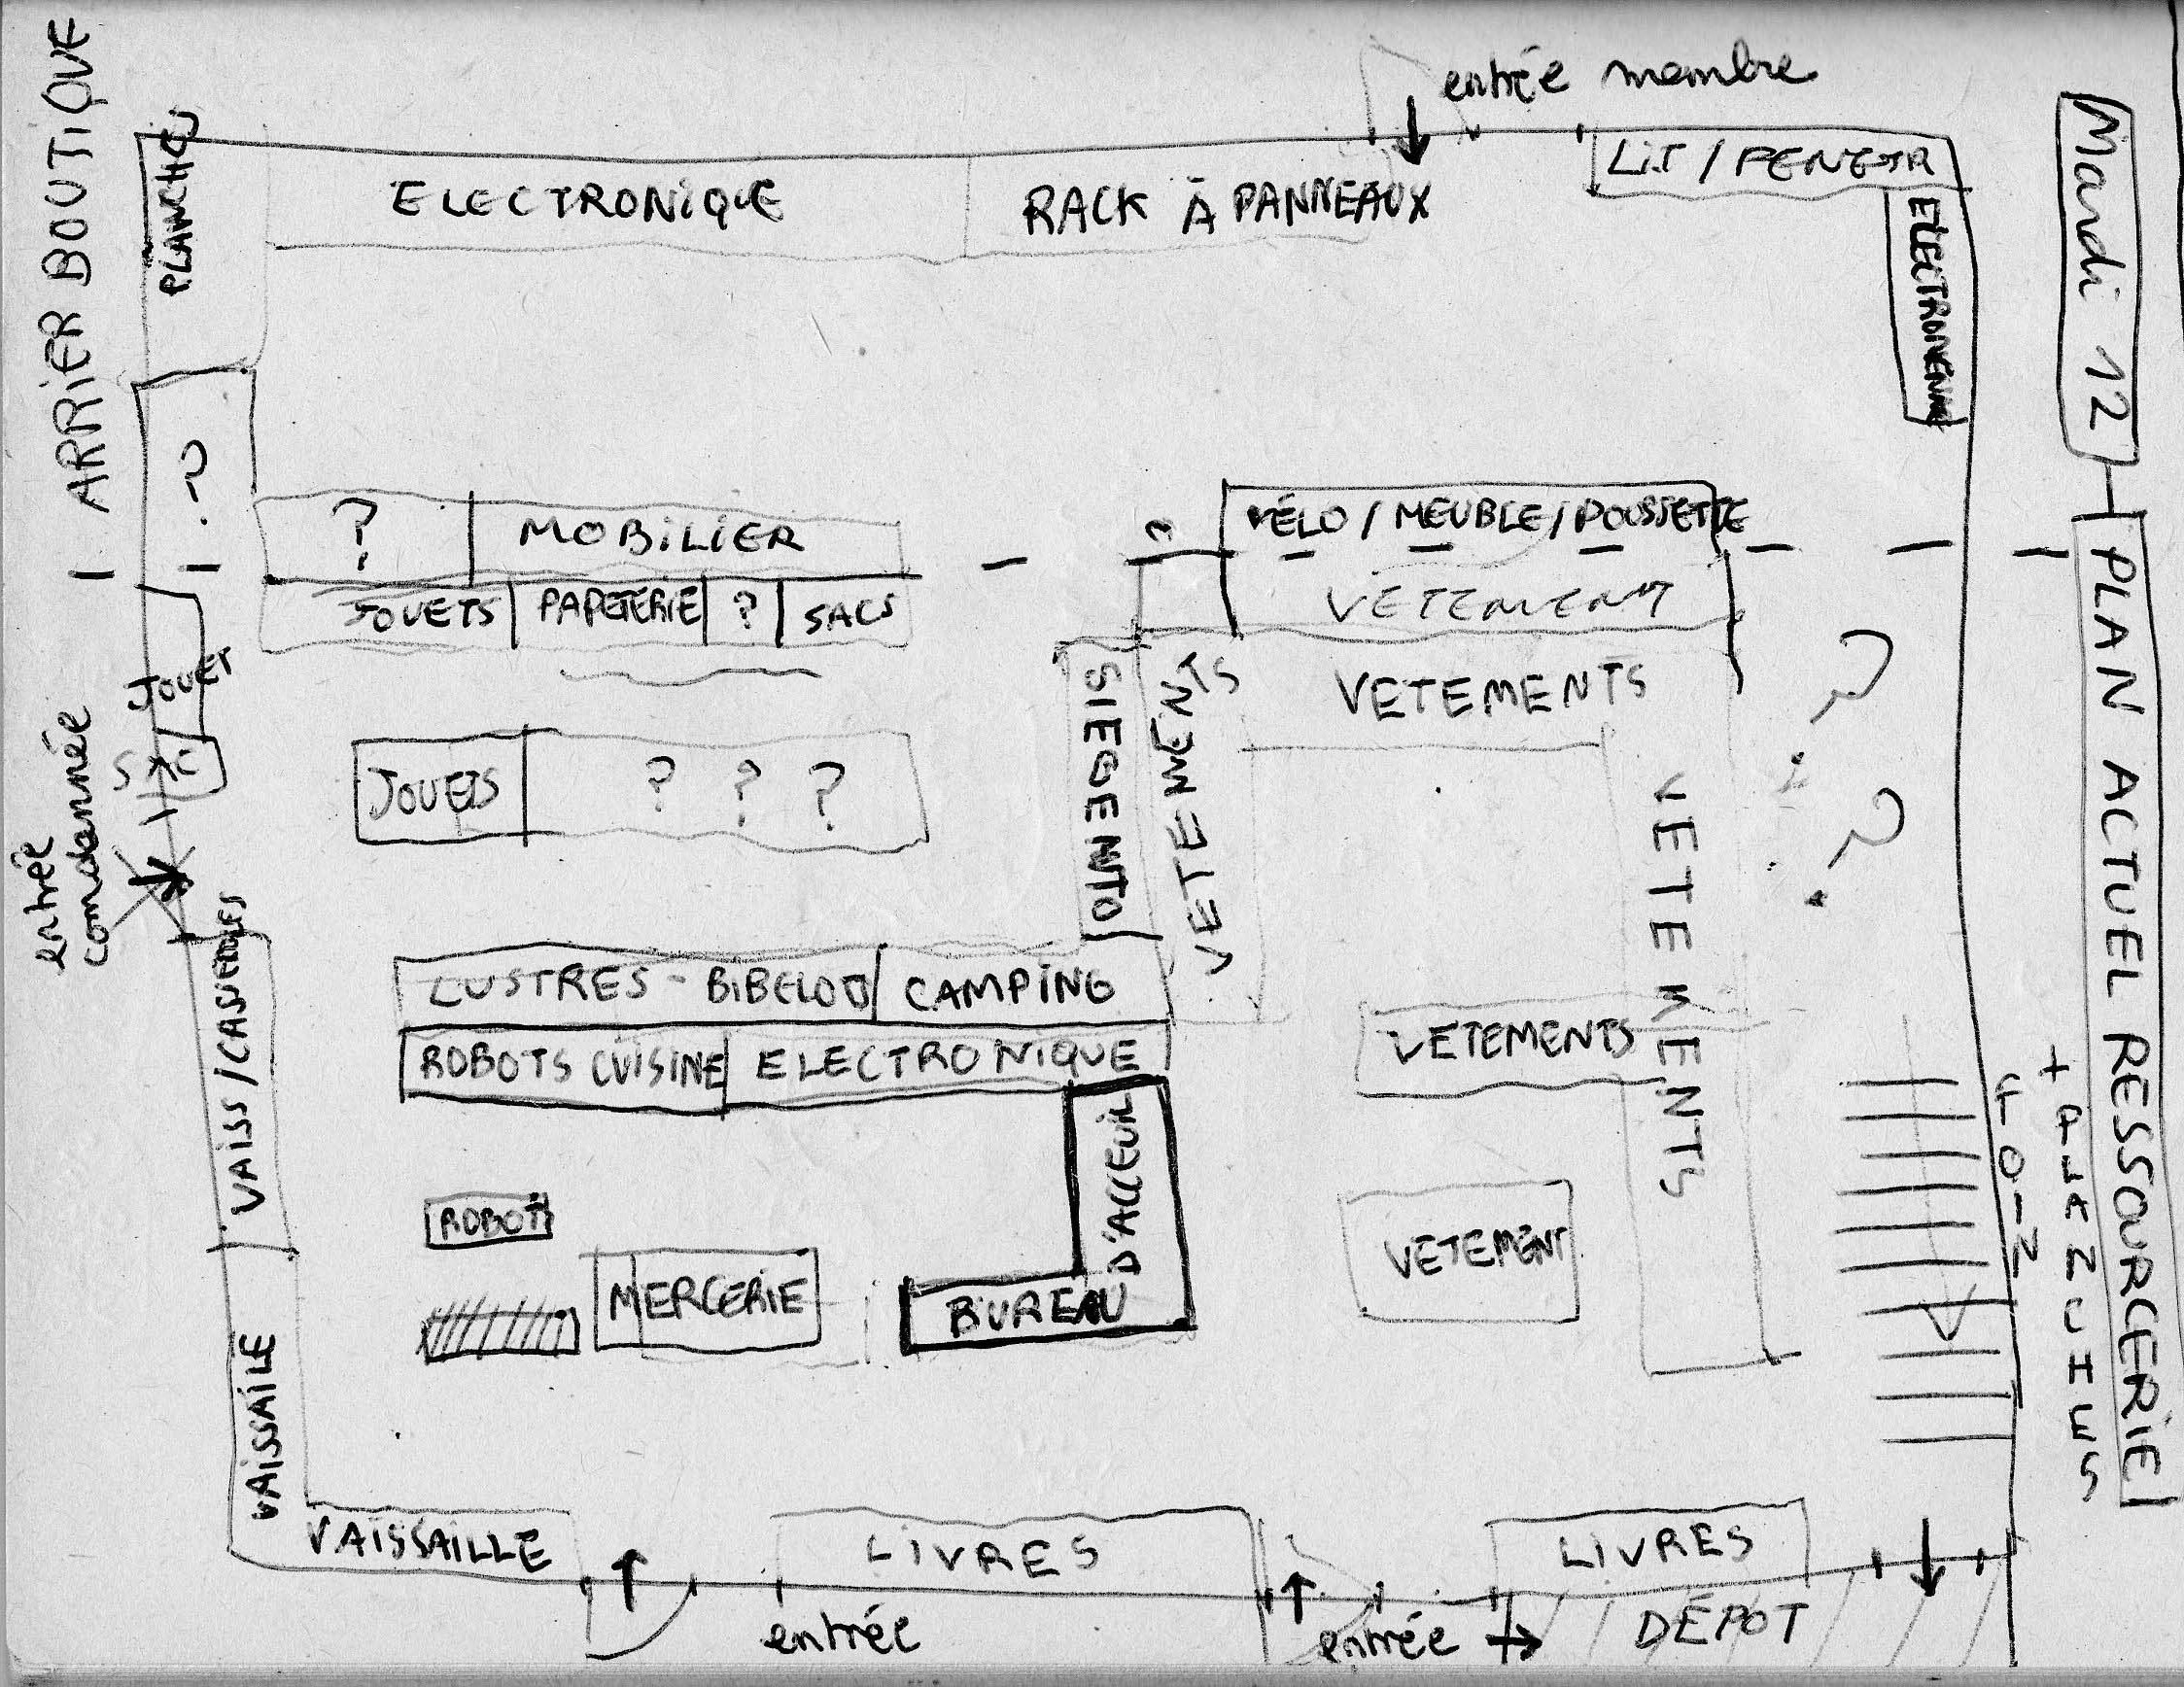 Mardi 12
PLAN ACTUEL RESSOURCERIE
ARRIER BOUTIQUE
entrée membre
PLANCHES
ELECTRONIQUE
RACK À PANNEAUX
LIT / FENETR
?
?
MOBILIER
?
VÉLO / MEUBLE / POUSSETTE
JOUETS
PAPETERIE
?
SACS
VETEMENT
JOUET
SAC
entrée
condamnée
SIEGE AUTO
VETEMENTS
VETEMENTS
VETEMENTS
?
?
JOUETS
? ? ?
LUSTRES - BIBELOT
CAMPING
ROBOTS CUISINE
ELECTRONIQUE
VETEMENTS
VAISS / CASSEROLES
ROBOT
MERCERIE
BUREAU
D'ACCEUIL
VETEMENT
+
VAISSAILE
VAISSAILLE
LIVRES
LIVRES
entrée
entrée
DÉPOT